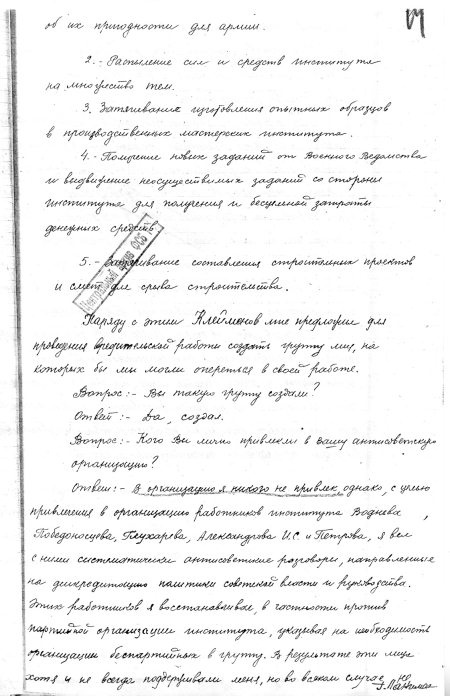 об их пригодности для армии.
2.- Распыление сил и средств института
на множество тем.
3. Затягивание изготовления опытных образцов
в производственных мастерских института.
4.- Получение новых заданий от Военного Ведомства
и выдвижение неосуществимых заданий со стороны
института для получения и бесцельной затраты
денежных средств.
5.- Затягивание составления строительных проектов
и смет для срыва строительства.
Центральный архив ФСБ
Наряду с этим Клейменов мне предложил для
проведения вредительской работы создать группу лиц, на
которых бы мы могли опереться в своей работе.
Вопрос:- Вы такую группу создали?
Ответ:- Да, создал.
Вопрос:- Кого Вы лично привлекли в вашу антисоветскую
организацию?
Ответ:- В организацию я никого не привлек, однако, с целью
привлечения в организацию работников института Воднева,
Победоносцева, Глухарева, Александрова И.С. и Петрова, я вел
с ними систематически антисоветские разговоры, направленные
на дискредитацию политики советской власти и руководства.
Этих работников я восстанавливал, в частности против
партийной организации института, указывая на необходимость
организации беспартийных в группу. В результате эти лица
хотя и не всегда поддерживали меня, но во всяком случае не